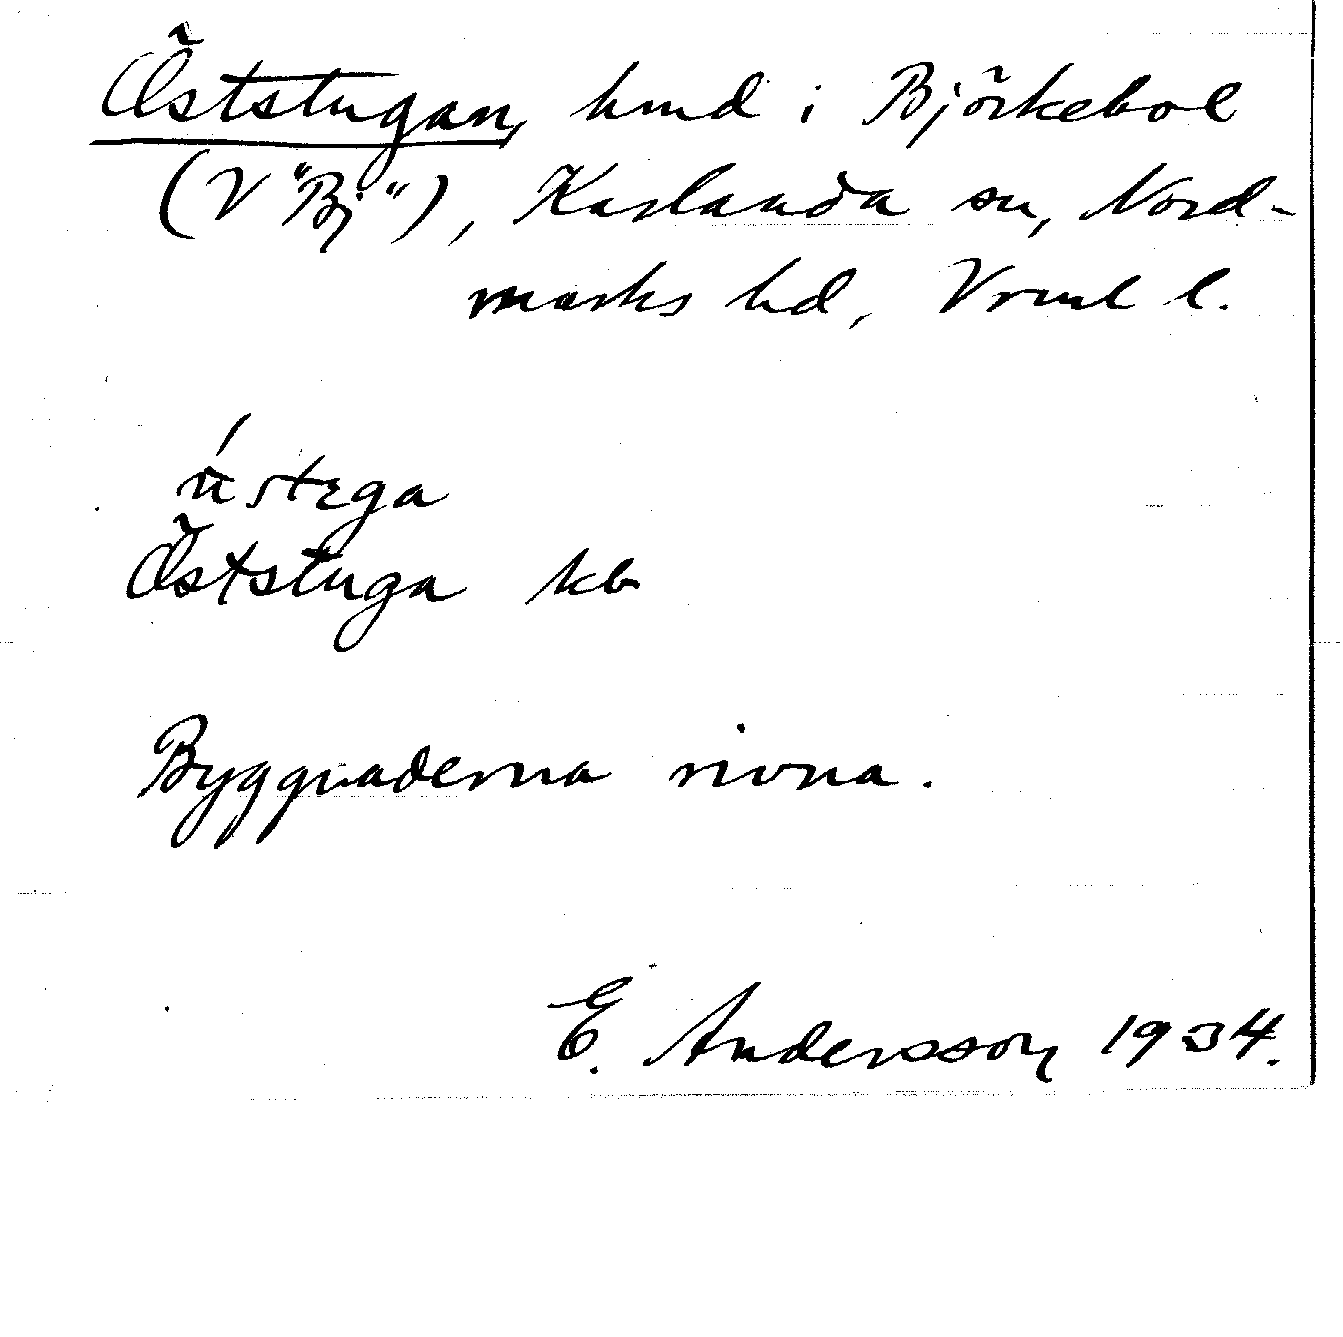 Öststugan, hmd i Björkebol
(V "Bj"), Karlanda sn, Nord-
marks hd, Vrml l.
Öststuga kb
Byggnaderna rivna.
E. Andersson 1934.